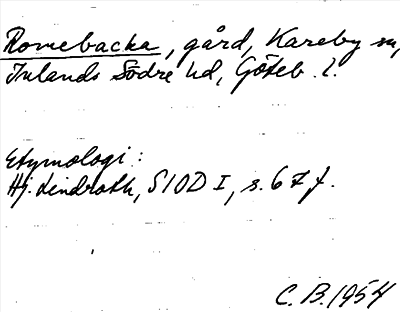 Romebacka, gård, Kareby sn,
Inlands Södre hd, Göteb. l.
Etymologi:
Hj. Lindroth, SIOD I, s. 67 f.
C. B. 1954